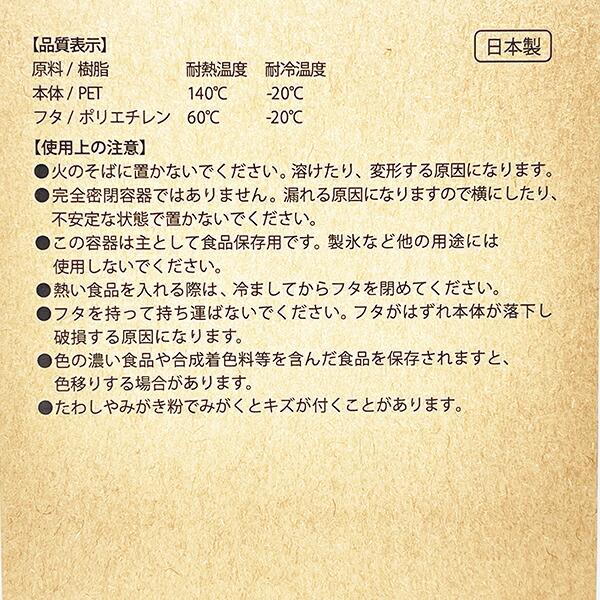 【品質表示】 日本製
原料 / 樹脂 耐熱温度 耐冷温度
本体 / PET 140℃ -20℃
フタ / ポリエチレン 60℃ -20℃
【使用上の注意】
●火のそばに置かないでください。溶けたり、変形する原因になります。
●完全密閉容器ではありません。漏れる原因になりますので横にしたり、
不安定な状態で置かないでください。
●この容器は主として食品保存用です。製氷など他の用途には
使用しないでください。
●熱い食品を入れる際は、冷ましてからフタを閉めてください。
●フタを持って持ち運ばないでください。フタがはずれ本体が落下し
破損する原因になります。
●色の濃い食品や合成着色料等を含んだ食品を保存されますと、
色移りする場合があります。
●たわしやみがき粉でみがくとキズが付くことがあります。